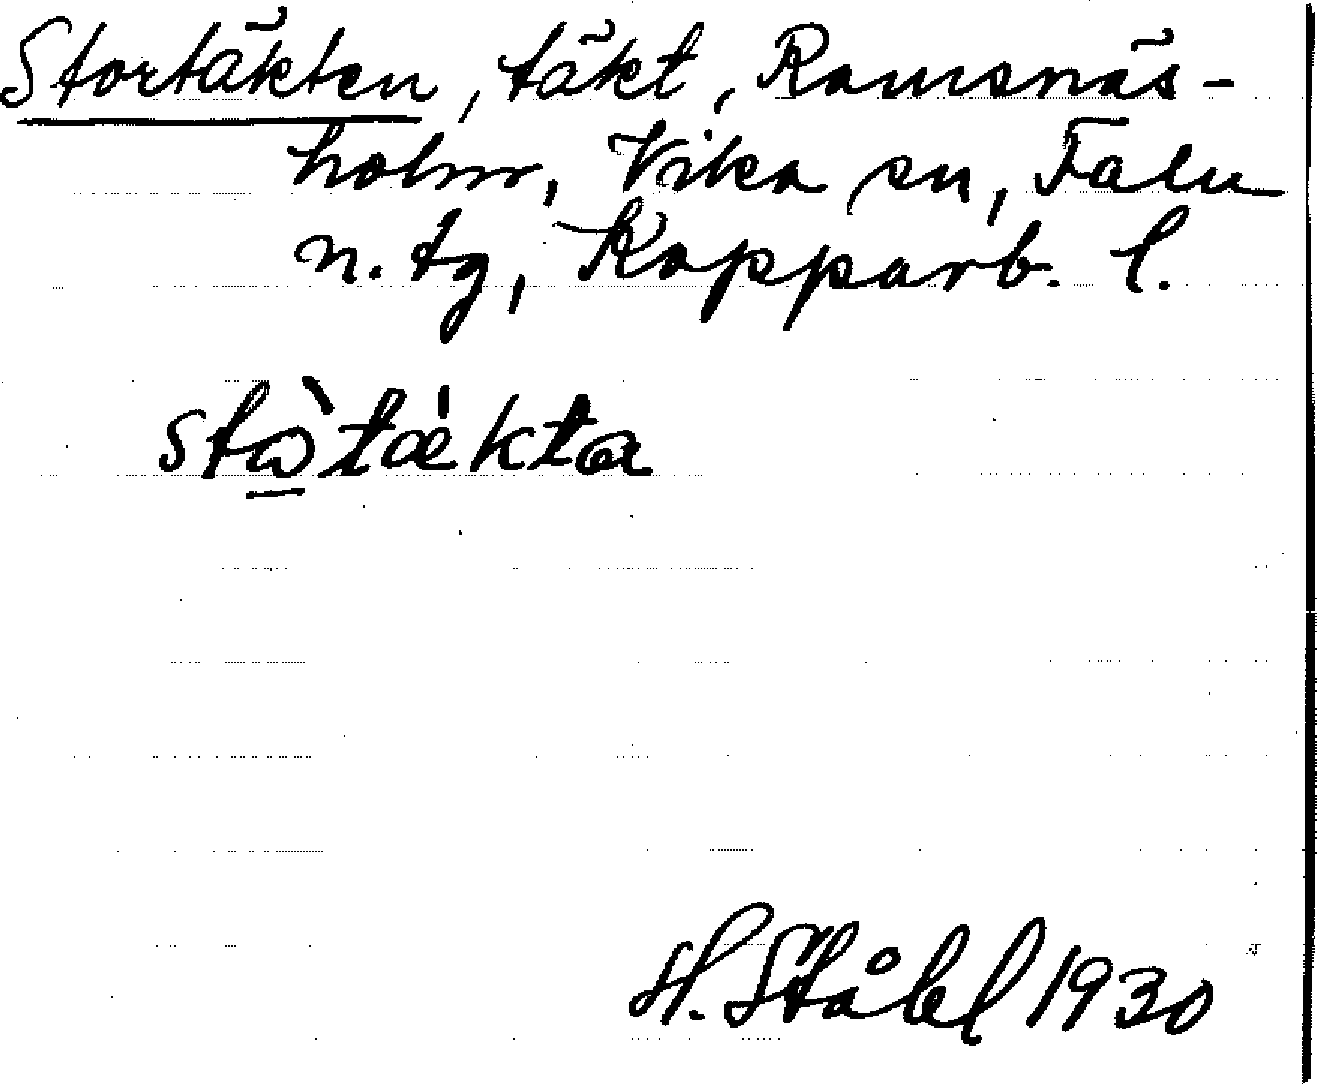 Stortäkten, täkt, Ramsnäs-
holm, Vika sn, Falu
n. tg, Kopparb. l.
stὼ̲tækta
H. Ståhl 1930